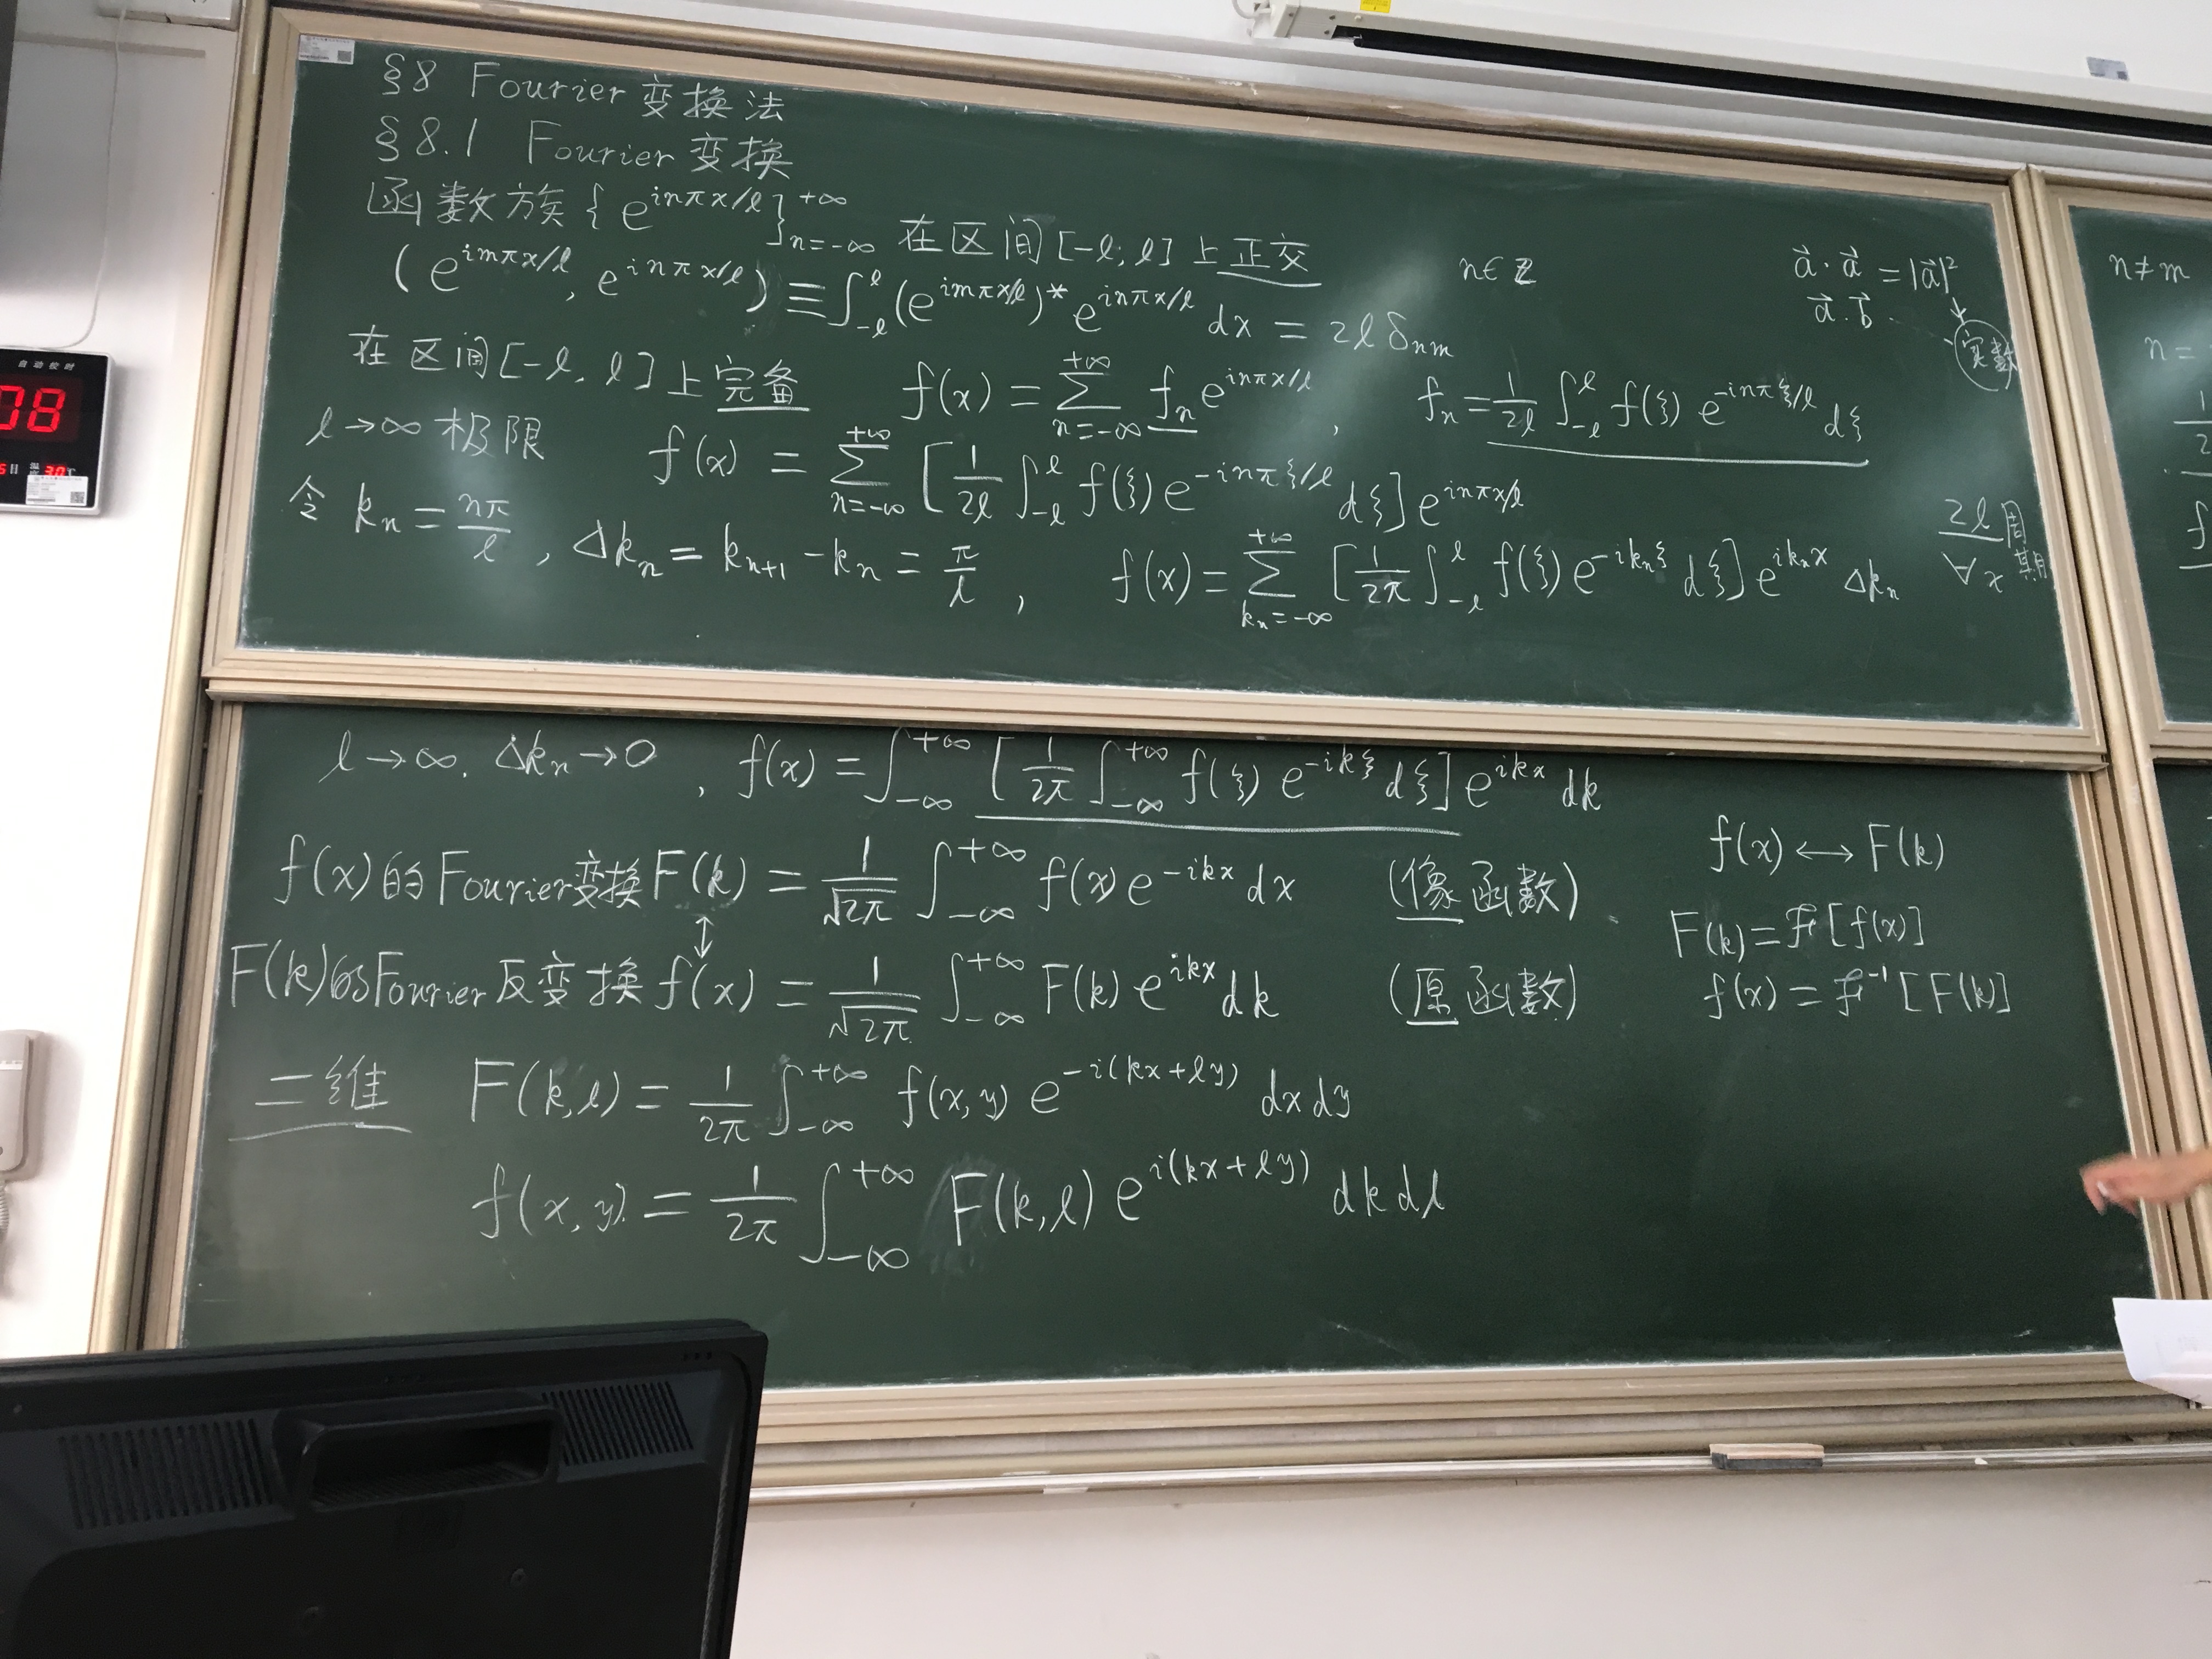 §8 Fourier 变换法
§8.1 Fourier 变换
函数族 {e^{inπx/l}}_{n=-∞}^{+∞} 在区间 [-l, l] 上正交 n∈Z
(e^{imπx/l}, e^{inπx/l}) ≡ ∫_{-l}^{l} (e^{imπx/l})* e^{inπx/l} dx = 2l δ_{nm}
a⃗·a⃗ = |a⃗|²
a⃗·b⃗
实数
在区间 [-l, l] 上完备 f(x) = Σ_{n=-∞}^{+∞} f_n e^{inπx/l}, f_n = 1/2l ∫_{-l}^{l} f(ξ) e^{-inπξ/l} dξ
l→∞ 极限 f(x) = Σ_{n=-∞}^{+∞} [1/2l ∫_{-l}^{l} f(ξ) e^{-inπξ/l} dξ] e^{inπx/l}
令 k_n = nπ/l, Δk_n = k_{n+1} - k_n = π/l, f(x) = Σ_{k_n=-∞}^{+∞} [1/2π ∫_{-l}^{l} f(ξ) e^{-ik_nξ} dξ] e^{ik_nx} Δk_n
2l 周期
∀x
l→∞. Δk_n→0, f(x) = ∫_{-∞}^{+∞} [1/2π ∫_{-∞}^{+∞} f(ξ) e^{-ikξ} dξ] e^{ikx} dk
f(x) 的 Fourier 变换 F(k) = 1/√2π ∫_{-∞}^{+∞} f(x) e^{-ikx} dx (像函数)
↕
F(k) 的 Fourier 反变换 f(x) = 1/√2π ∫_{-∞}^{+∞} F(k) e^{ikx} dk (原函数)
f(x) ↔ F(k)
F(k) = ℱ[f(x)]
f(x) = ℱ^{-1}[F(k)]
二维 F(k,l) = 1/2π ∫_{-∞}^{+∞} f(x,y) e^{-i(kx+ly)} dx dy
f(x,y) = 1/2π ∫_{-∞}^{+∞} F(k,l) e^{i(kx+ly)} dk dl
n≠m
n=
自动校时
08